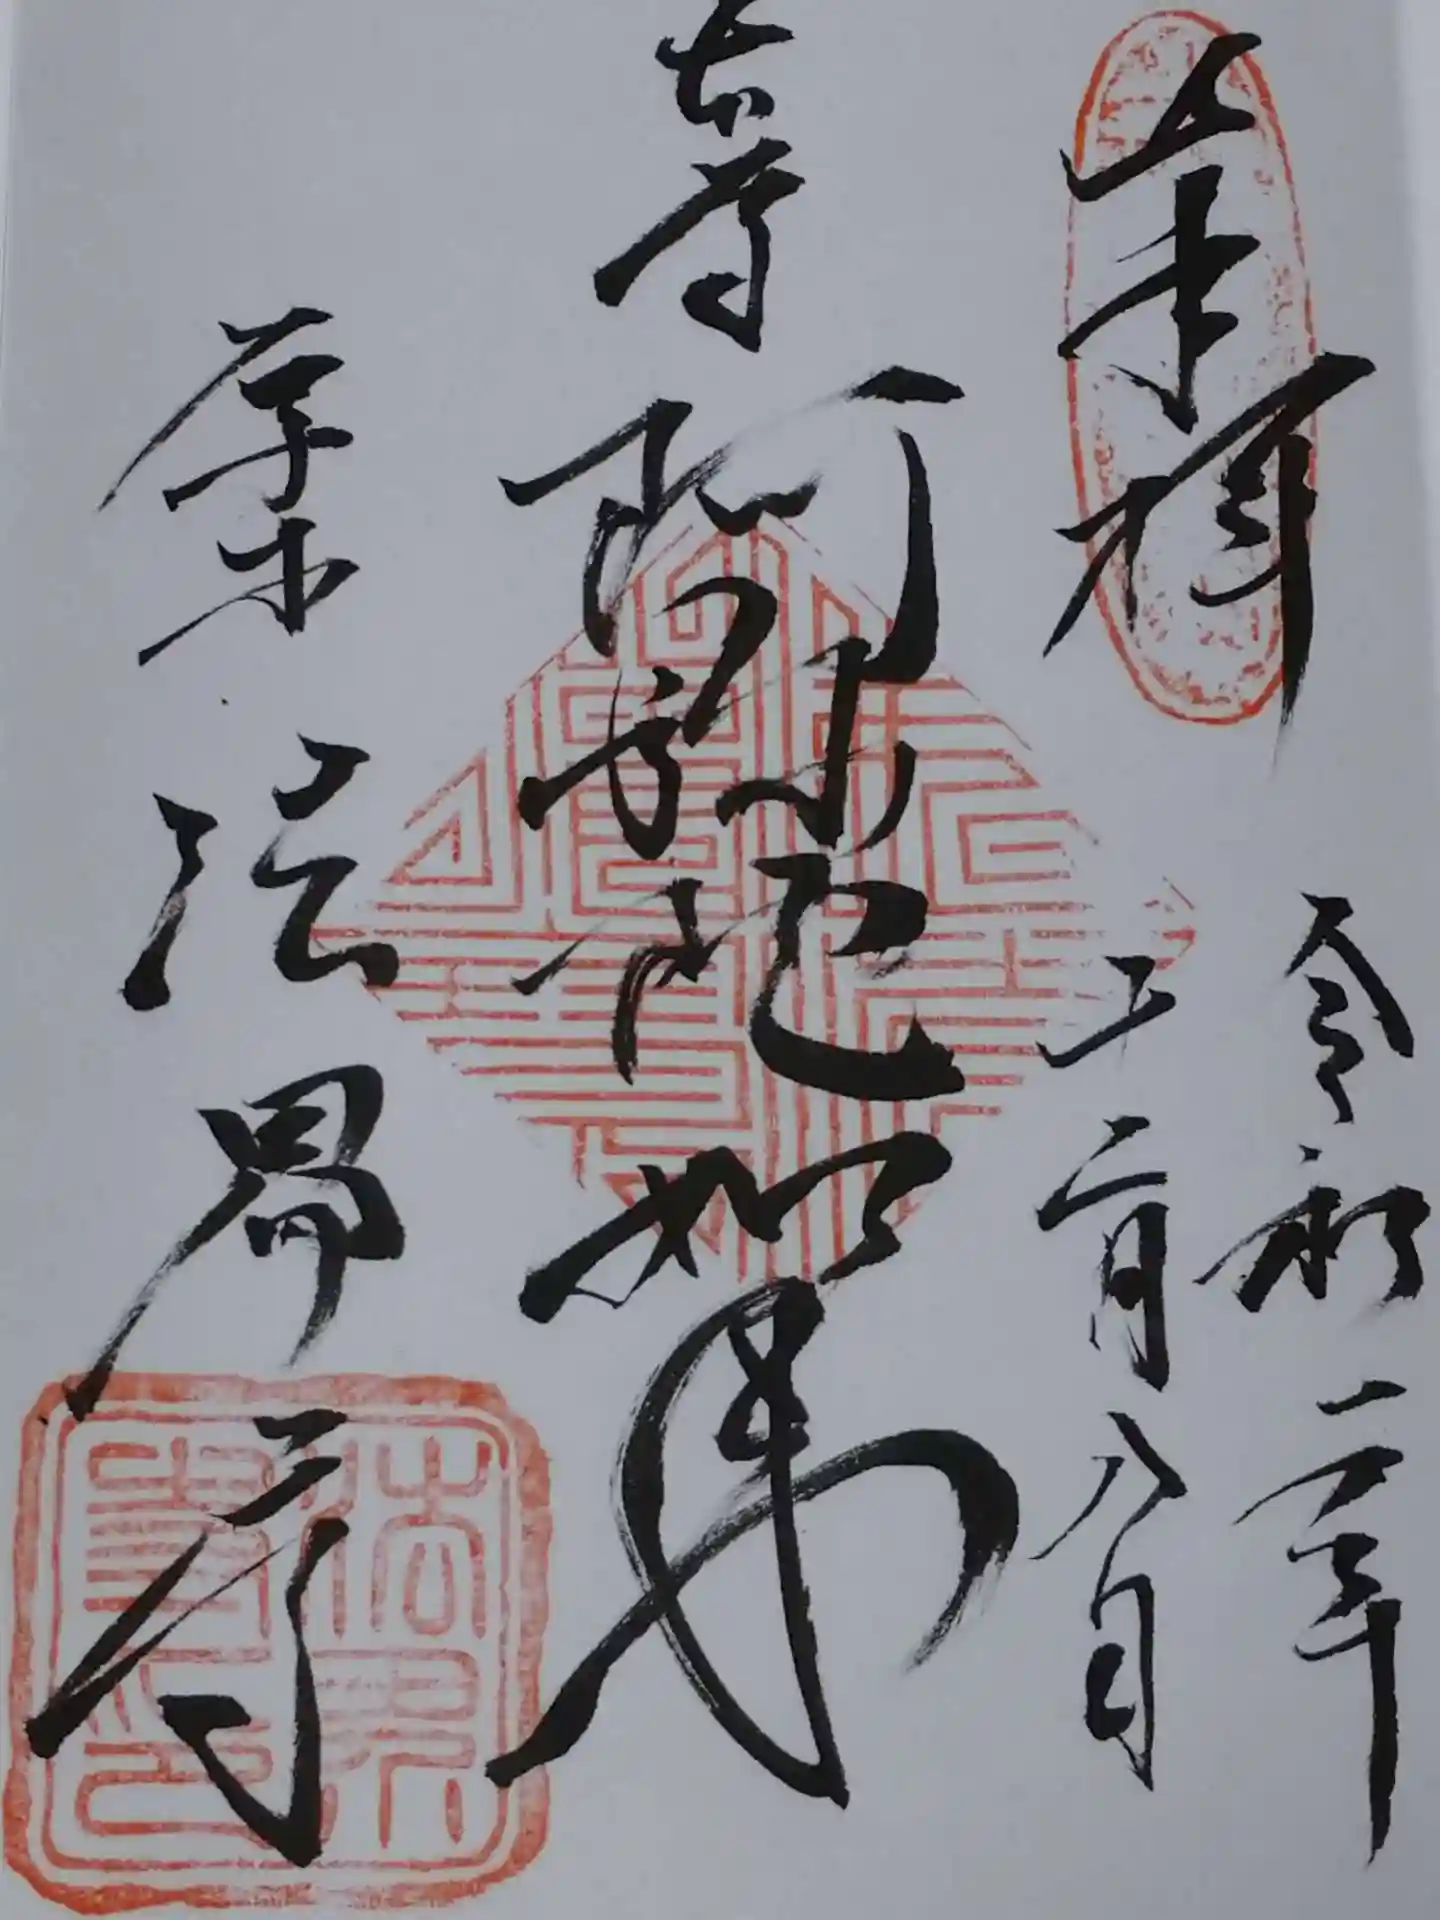 奉拝
令和二年
十二月八日
本尊 阿弥陀如来
厚木 法界寺